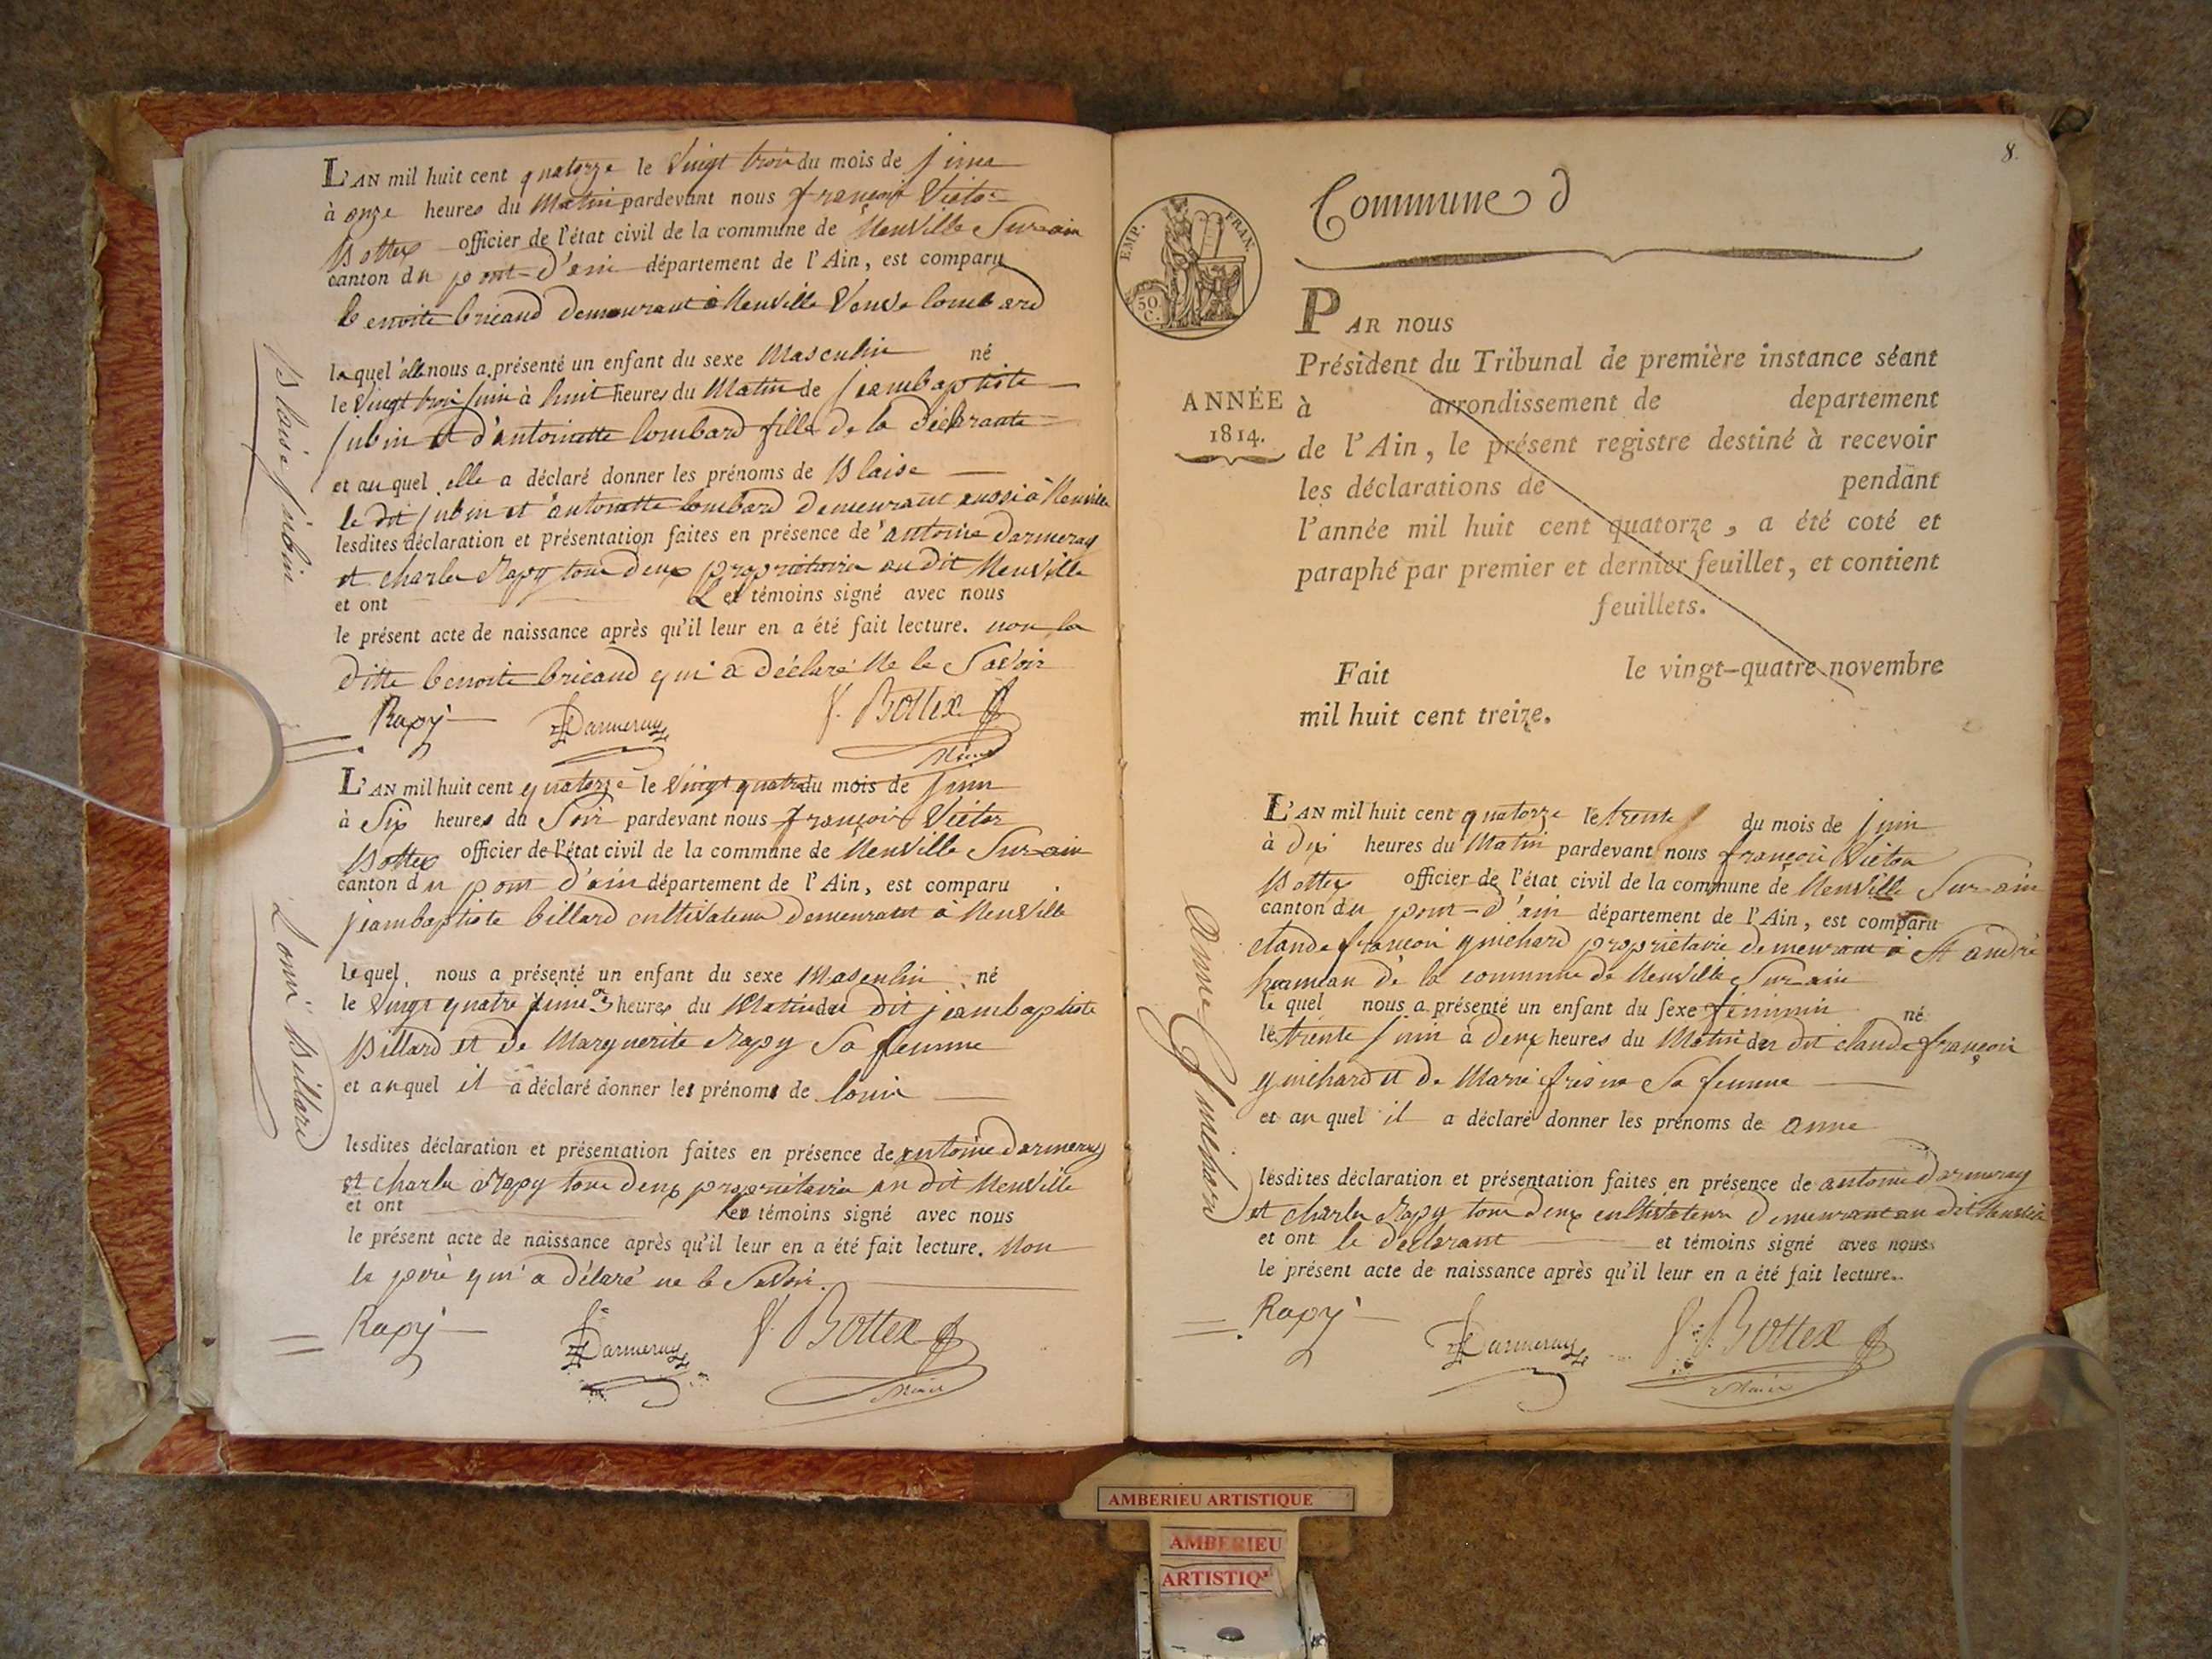 L'AN mil huit cent quatorze le vingt trois du mois de juin
à onze heures du Matin pardevant nous françois Victor
Bottex officier de l'état civil de la commune de Neuville Sur ain
canton du pont-d'ain département de l'Ain, est comparu
benoite bricaud demeurant à Neuville Veuve lombard
laquel elle nous a présenté un enfant du sexe Masculin né
le vingt trois juin à huit heures du Matin de jeambaptiste
jubin et d'antoinette lombard fille de la déclarante
et au quel elle a déclaré donner les prénoms de Blaise
le dit jubin et antoinette lombard demeurant aussi à Neuville
lesdites déclaration et présentation faites en présence de antoine darmeray
et charles Rapy tous deux propriétaires au dit Neuville
et ont Les témoins signé avec nous
le présent acte de naissance après qu'il leur en a été fait lecture. non la
ditte benoite bricaud qui a déclaré Ne le Savoir
Rapy Darmeray f. Bottex
Maire
Blaise jubin
L'AN mil huit cent quatorze le vingt quatre du mois de juin
à Six heures du Soir pardevant nous françois Victor
Bottex officier de l'état civil de la commune de Neuville Sur ain
canton du pont d'ain département de l'Ain, est comparu
jeambaptiste billard cultivateur demeurant à Neuville
lequel nous a présenté un enfant du sexe Masculin né
le vingt quatre juin à 3 heures du Matin du dit jeambaptiste
Billard et de Marguerite Rapy Sa femme
et auquel il a déclaré donner les prénoms de louis
lesdites déclaration et présentation faites en présence de antoine darmeray
et charles Rapy tous deux propriétaires au dit Neuville
et ont Les témoins signé avec nous
le présent acte de naissance après qu'il leur en a été fait lecture. Non
le père qui a délaré ne le Savoir.
Rapy Darmeray f. Bottex
Maire
Louis Billard
8.
Commune d
EMP. FRAN.
50.
C.
ANNÉE
1814.
PAR nous
Président du Tribunal de première instance séant
à arrondissement de departement
de l'Ain, le présent registre destiné à recevoir
les déclarations de pendant
l'année mil huit cent quatorze, a été coté et
paraphé par premier et dernier feuillet, et contient
feuillets.
Fait le vingt-quatre novembre
mil huit cent treize.
L'AN mil huit cent quatorze le trente du mois de juin
à dix heures du Matin pardevant nous françois Victor
Bottex officier de l'état civil de la commune de Neuville Sur ain
canton du pont-d'ain département de l'Ain, est comparu
claude françois guichard propriétaire demeurant à St andré
hameau de la commune de Neuville Sur ain
le quel nous a présenté un enfant du sexe féminin né
le trente juin à deux heures du Matin du dit claude françois
guichard et de Marie fresne Sa femme
et au quel il a déclaré donner les prénoms de anne
lesdites déclaration et présentation faites en présence de antoine darmeray
et charles Rapy tous deux cultivateurs demeurant au dit Neuville
et ont le déclarant et témoins signé avec nous
le présent acte de naissance après qu'il leur en a été fait lecture.
Rapy Darmeray f. Bottex
Maire
Anne Guichard
AMBERIEU ARTISTIQUE
AMBERIEU
ARTISTIQ